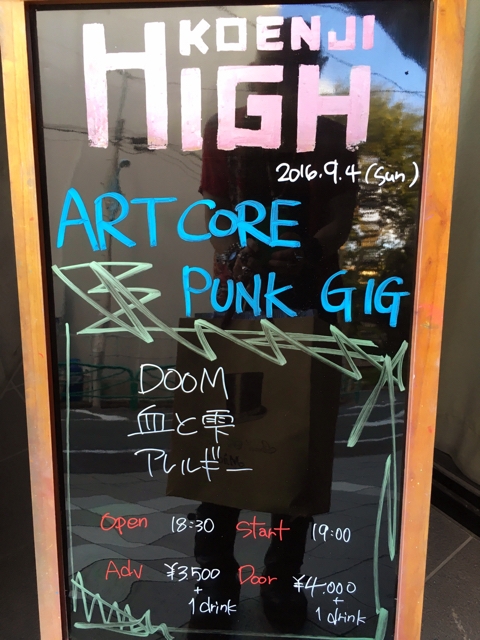 KOENJI
HIGH
2016.9.4 (Sun)
ARTCORE
PUNK GIG
DOOM
血と雫
アレルギー
Open 18:30 Start 19:00
Adv ¥3500 Door ¥4.000
+ +
1drink 1drink